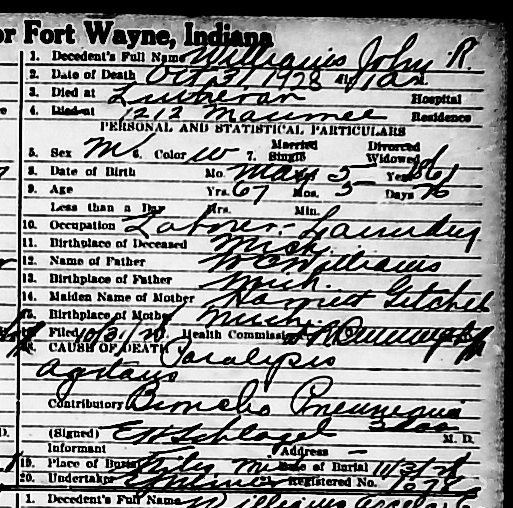 or Fort Wayne, Indiana
1. Decedent's Full Name Williams John R.
2. Date of Death Oct 31 1928 At 1 a.m.
3. Died at Lutheran Hospital
4. Died at 1212 Maumee Residence
PERSONAL AND STATISTICAL PARTICULARS
Married Divorced
5. Sex M 6. Color W 7. Single Widowed
8. Date of Birth Mo. May 5 Year 1861
9. Age Yrs. 67 Mos. 5 Days 26
Less than a Day Hrs. Min.
10. Occupation Laborer - Laundry
11. Birthplace of Deceased Mich.
12. Name of Father Williams
13. Birthplace of Father Mich.
14. Maiden Name of Mother Harriett Getchel
15. Birthplace of Mother Mich
Filed 10/31/28 Health Commiss
CAUSE OF DEATH Paralysis
agitans
Contributory Broncho Pneumonia
(Signed) E H Schlagel M. D.
Informant Address
19. Place of Burial Date of Burial 11/3/28
20. Undertaker Registered No.
1. Decedent's Full Name Williams